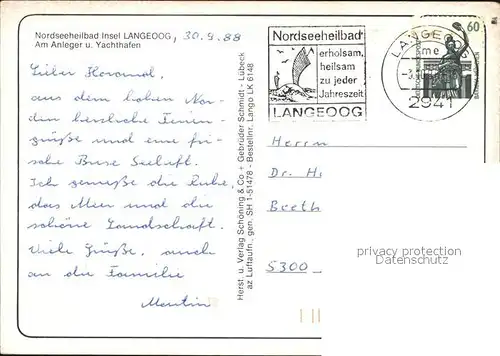 Nordseeheilbad Insel LANGEOOG, 30.9.88
Am Anleger u. Yachthafen
Lieber
aus dem hohen Nor-
den herzliche Ferien-
grüße und eine fri-
sche Brise Seeluft.
Ich genieße die Ruhe,
das Meer und die
schöne Landschaft.
Viele Grüße, auch
an die Familie
Martin
Herst. u. Verlag Schöning & Co + Gebrüder Schmidt · Lübeck
az Luftaufn., gen. SH 1-51478 · Bestellnr. Lango LK 6148
Nordseeheilbad
erholsam,
heilsam
zu jeder
Jahreszeit
LANGEOOG
LANGEOOG
me
2941
60
Herrn
Dr. H
Beeth
5300
privacy protection
Datenschutz